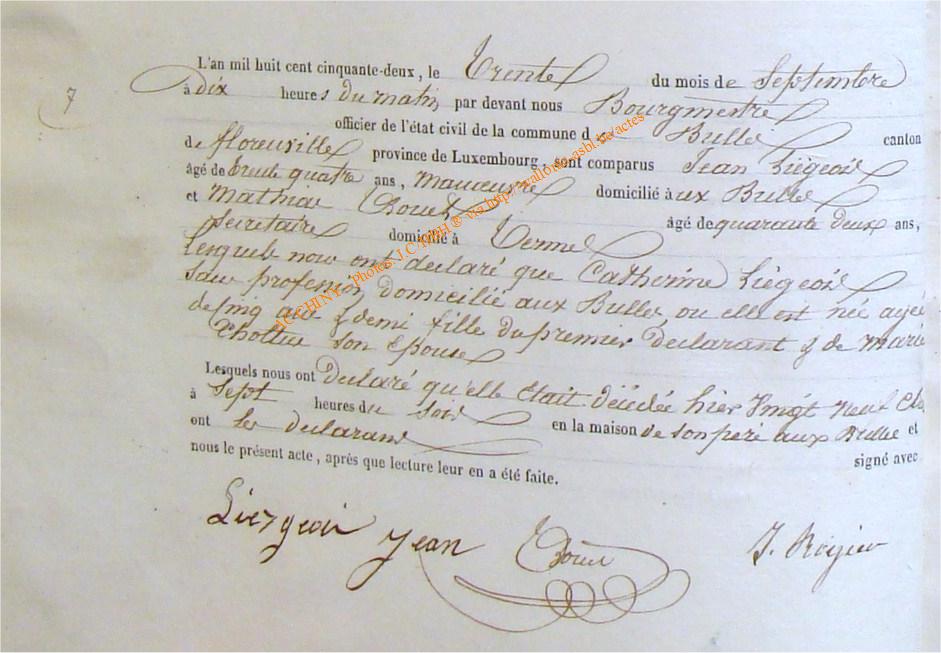 L'an mil huit cent cinquante-deux, le Trente du mois de Septembre
7
à dix heures du matin par devant nous Bourgmestre
officier de l'état civil de la commune de Bulle canton
de florenville province de Luxembourg, sont comparus Jean Liégeois
âgé de trente quatre ans, manoeuvre domicilié à aux Bulles
et Mathieu âgé de quarante deux ans,
secretaire domicilié à Termes
lesquels nous ont declaré que Catherine Liégeois
sans profession domicilié aux Bulles, ou elle est née agée
de cinq ans & demi fille du premier declarant & de Marie
son Epouse
Lesquels nous ont declaré qu'elle était décédée hier vingt neuf
à Sept heures du soir en la maison de son père aux Bulles et
ont les declarans signé avec
nous le présent acte, après que lecture leur en a été faite.
Liezgeois Jean
ACCHINY - Photos J.C. via http://wallonia-asbl.be/actes